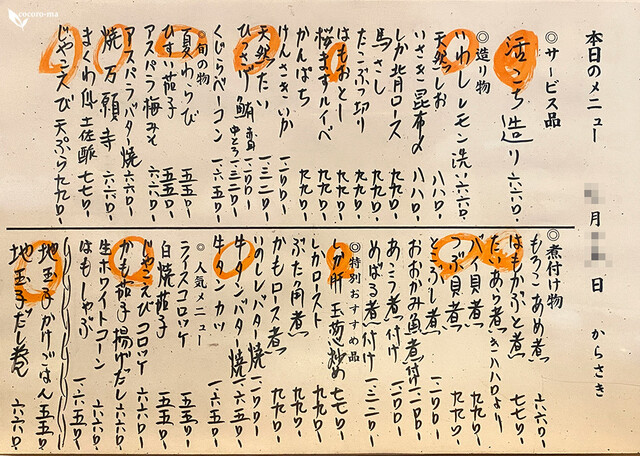 cocoro-ma
本日のメニュー
月 日 からさき
◎サービス品
活こち造り 六六〇-
◎造り物
いわしレモン洗 六六〇-
天然しお 八八〇-
いさき昆布〆 八八〇-
しか背ロース 九九〇-
馬さし 九九〇-
たこぶつ切り 九九〇-
はもおとし 九九〇-
桜ますルイベ 九九〇-
かんぱち 九九〇-
けんさきいか 一一〇〇-
天然たい 一三二〇-
ひっさげ鮪 赤身 中とろ 一三二〇-
くじらベーコン 一六五〇-
◎旬の物
夏わらび 五五〇-
ひすい茄子 五五〇-
アスパラ梅みそ 六六〇-
アスパラバター焼 六六〇-
焼万願寺 六六〇-
まぐろ 土佐酢 七七〇-
じゃこえび天ぷら 九九〇-
◎煮付け物
もろこあめ煮 六六〇-
はもかぶと煮 七七〇-
たいあら煮き 八八〇より
バイ貝煮 九九〇-
つぶ貝煮 九九〇-
とこぶし煮 一一〇〇-
おおかみ魚煮付け 一一〇〇-
あこう煮付け 一三二〇-
めばる煮付け 一三二〇-
◎特別おすすめ品
玉葱炒め 七七〇-
しかロースト 九九〇-
ぶた角煮 九九〇-
かもロース煮 九九〇-
いのしレバター焼 一一〇〇-
牛タンバター焼 一六五〇-
牛タンカツ 一六五〇-
◎人気メニュー
ライスコロッケ 五五〇-
白焼茄子 五五〇-
じゃこえびコロッケ 六六〇-
かも茄子揚げだし 六六〇-
生ホワイトコーン 六六〇-
はもしゃぶ 一六五〇-
地玉子かけごはん 五五〇-
地玉子だし巻 六六〇-